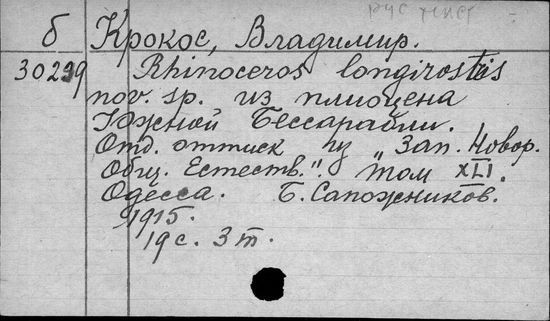 рус
б Крокос, Владимир.
30299 Rhinoceros longirostris
nov. sp. из плиоцена
Южной Бессарабии.
Отд. оттиск из „Зап. Новор.
Общ. Естеств.". Том XLI.
Одесса. Б. Сапожников.
1915.
19 с. 3 т.